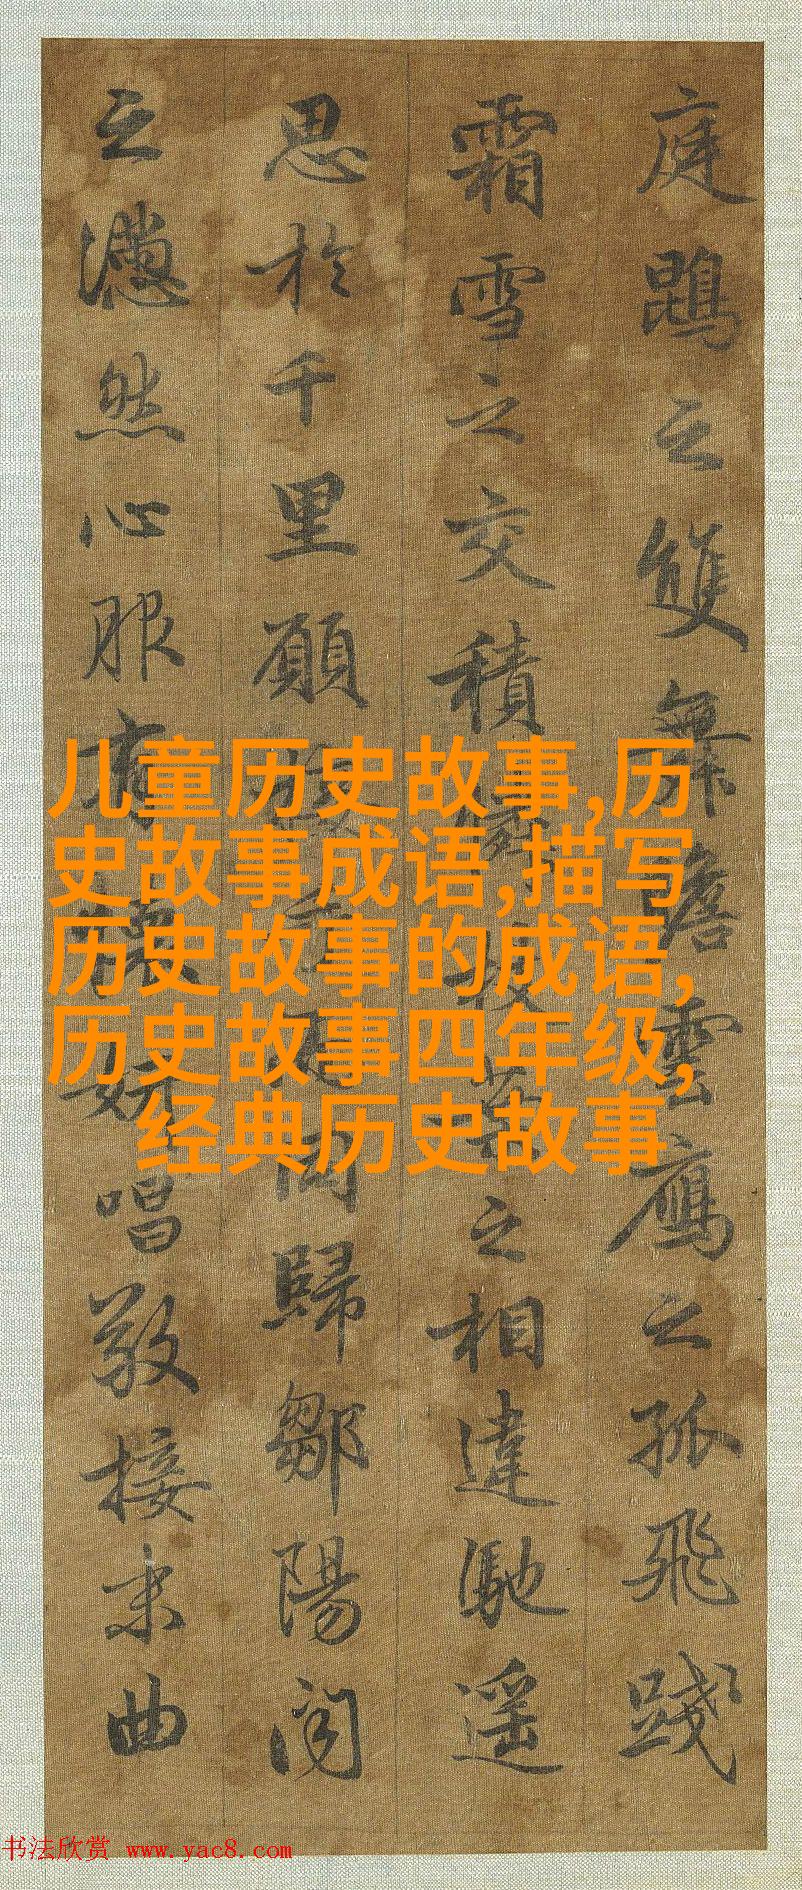 庭鵾之雙舞瞻雲鴈之孤飛踐
霜雪之交積之相違馳遥
思於千里願同歸鄒陽聞
之懣然心服有懷妍唱敬接末曲
儿童历史故事,历
史故事成语,描写
历史故事的成语,
历史故事四年级,
经典历史故事
书法欣赏 www.yac8.com